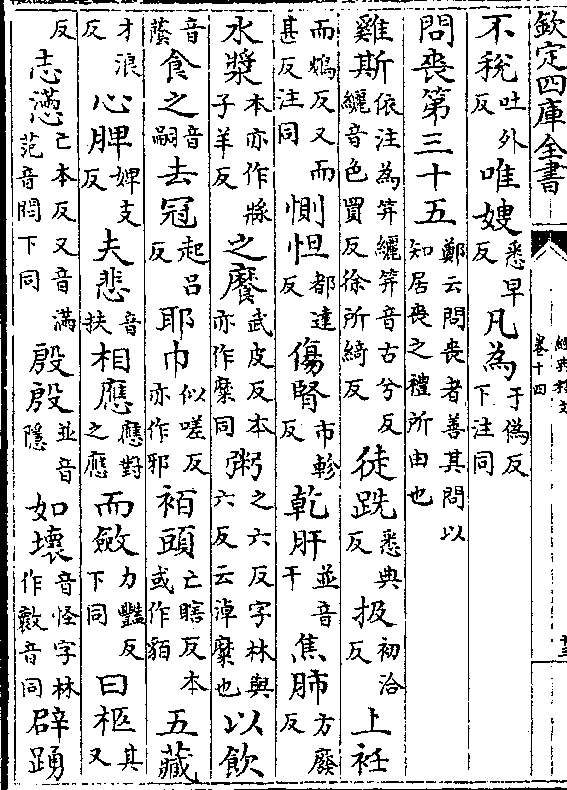 欽定四庫全書
經典釋文
卷十四
不稅吐外反唯嫂悉早反凡為于偽反下注同
問喪第三十五鄭云問喪者善其問以知居喪之禮所由也
雞斯依注為笄纚笄音古兮反纚音色買反徐所綺反徒跣悉典反扱初洽反上衽
而鴆反又而甚反注同惻怛都達反傷腎市軫反乾肝並音干焦肺方廢反
水漿本亦作將子羊反之糜武皮反本亦作糜同粥之六反字林與六反云淖糜也以飲
音蔭食之音嗣去冠起呂反耶巾似嗟反亦作邪袹頭亡瞎反本或作貊五藏
才浪反心脾婢支反夫悲音扶相應應對之應而斂力豔反下同曰柩其又
反志懣亡本反又音滿范音悶下同殷殷並音隱如壞音怪字林作㱮音同辟踊